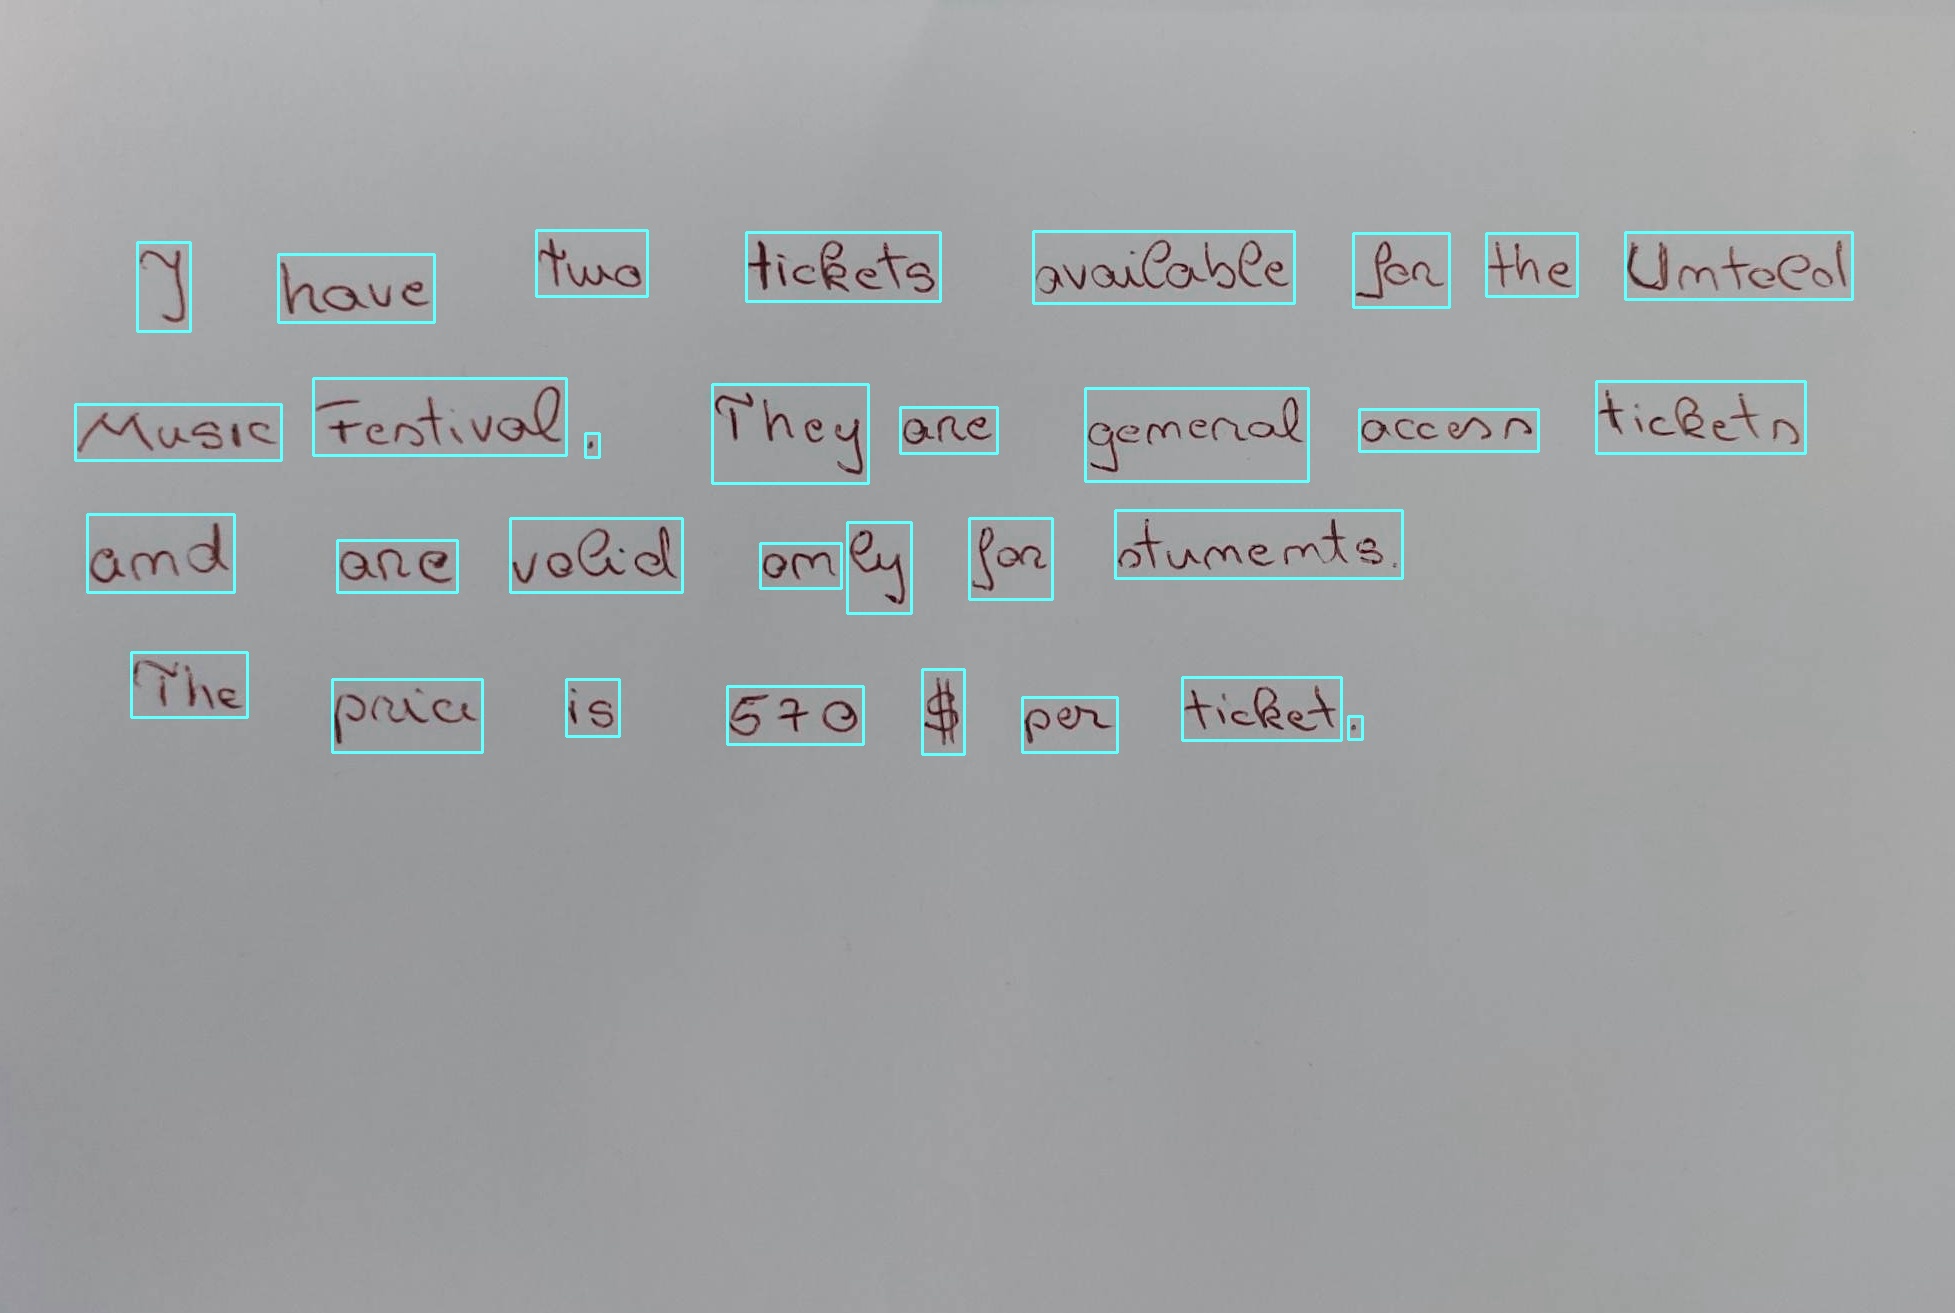 I have two tickets available for the Untold
Music Festival. They are general access tickets
and are valid only for stunents.
The price is 570 $ per ticket.